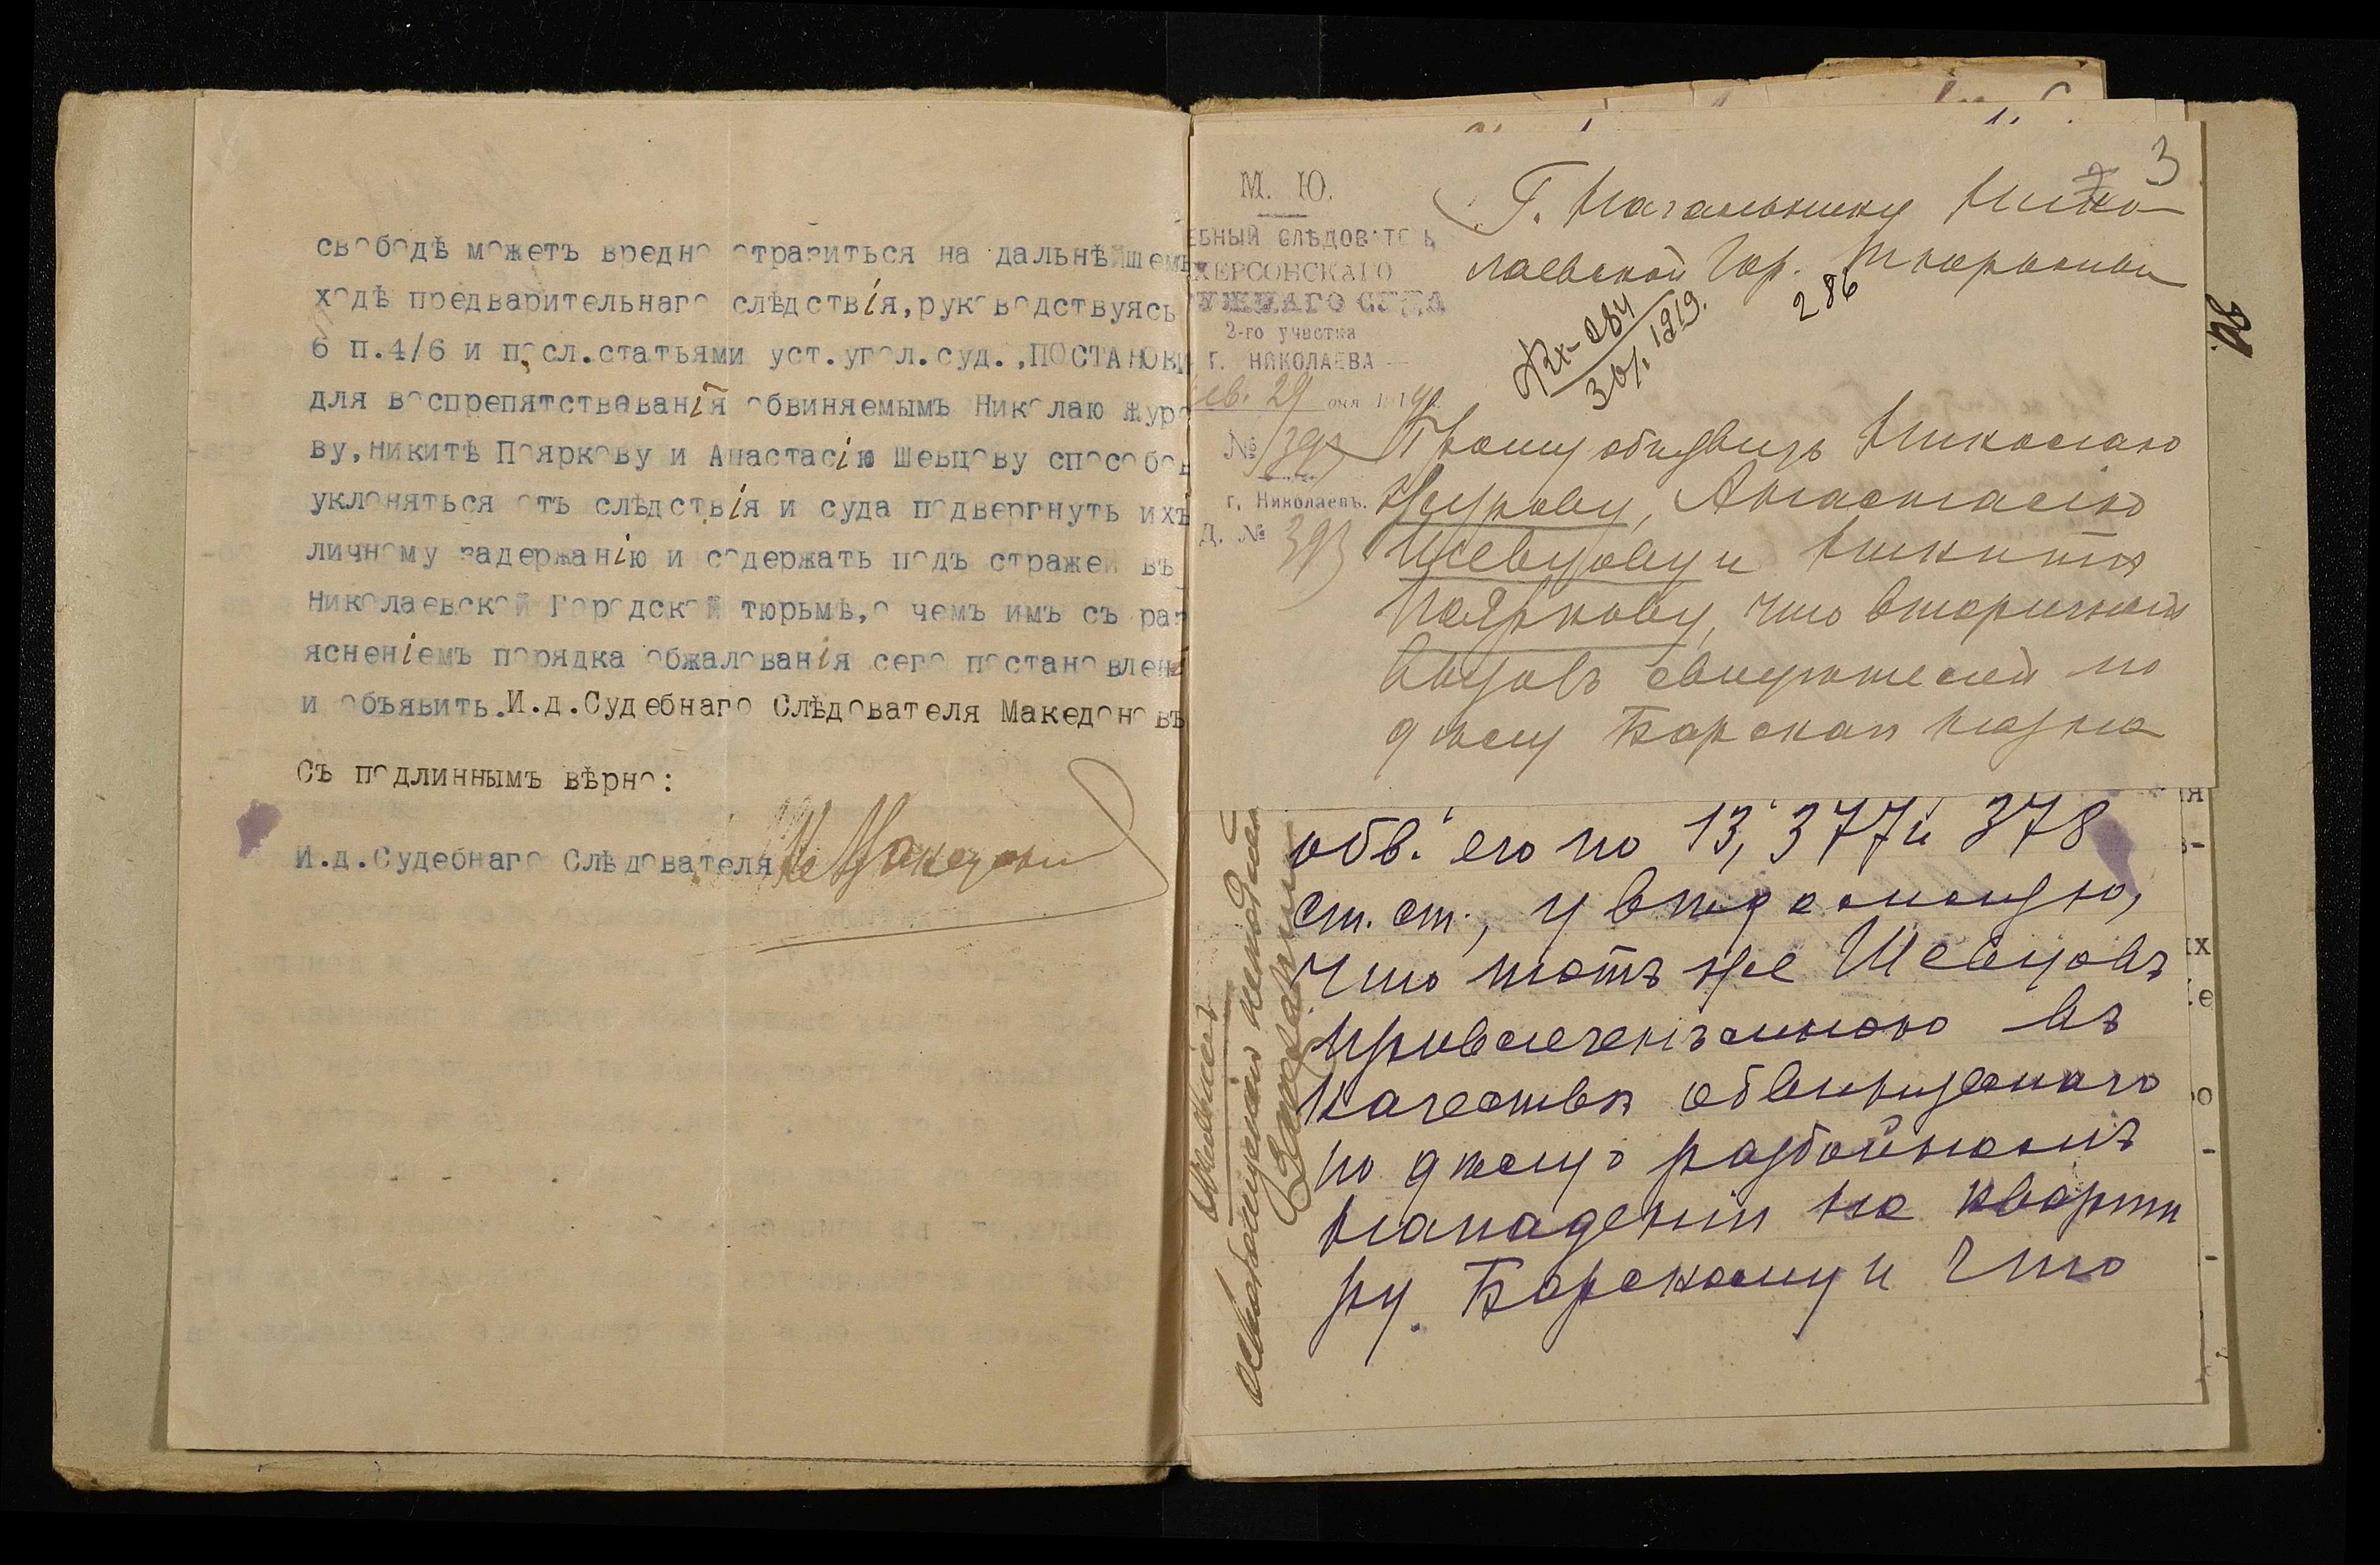 свободѣ можетъ вредно отразиться на дальнѣйшемъ
ходѣ предварительнаго слѣдствія,руководствуясь
6 п.4/6 и посл.статьями уст.угол.суд.,ПОСТАНОВИ
для воспрепятствованія обвиняемымъ Николаю Журо
ву,Никитѣ Пояркову и Анастасію Шевцову способов
уклоняться отъ слѣдствія и суда подвергнуть ихъ
личному задержанію и содержать подъ стражей въ
Николаевской Городской тюрьмѣ,о чемъ имъ съ раз
ясненіемъ порядка обжалованія сего постановлен
и объявить.И.д.Судебнаго Слѣдователя Македоновъ
Съ подлиннымъ вѣрно:
И.д.Судебнаго Слѣдователя
3
М. Ю.
ЕБНЫЙ СЛѢДОВАТЕЛЬ
ХЕРСОНСКАГО
УЖНАГО СУДА
2-го участка
Г. НИКОЛАЕВА
29
№ 393
г. Николаевъ.
Д. № 393
Г. Начальнику Нико
лаевской Гор. Тюрьмы
286
Вх-284
30/I 1919.
Прошу объявить Николаю
Журову, Анастасію
Шевцову и Никитѣ
Пояркову, что вторичный
вызовъ свидѣтелей по
дѣлу Барскаго назна
обв. его по 13, 377 и 378
ст. ст., увѣдомляю,
что тотъ же Шевцовъ
привлеченъ мною въ
качествѣ обвиняемаго
по дѣлу о разбойномъ
нападеніи на кварти
ру Барскому и что